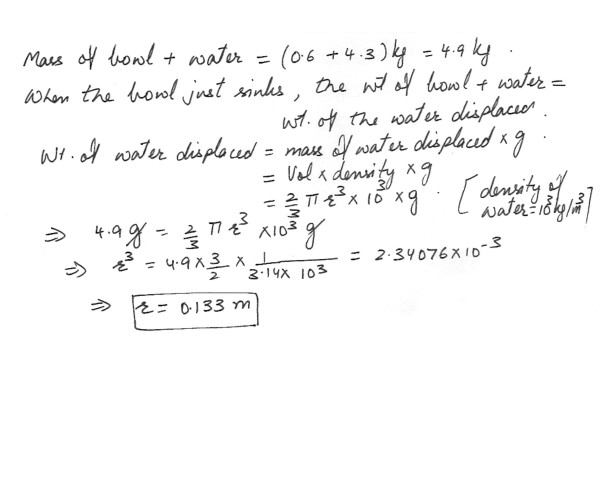 Mass of bowl + water = (0.6 + 4.3) kg = 4.9 kg.
When the bowl just sinks, the wt of bowl + water =
wt. of the water displaced.
Wt. of water displaced = mass of water displaced × g.
= Vol × density × g
= 2/3 π r³ × 10³ × g. [density of water = 10³ kg/m³]
⇒ 4.9 g = 2/3 π r³ × 10³ g
⇒ r³ = 4.9 × 3/2 × 1/(3.14 × 10³) = 2.34076 × 10⁻³
⇒ r = 0.133 m